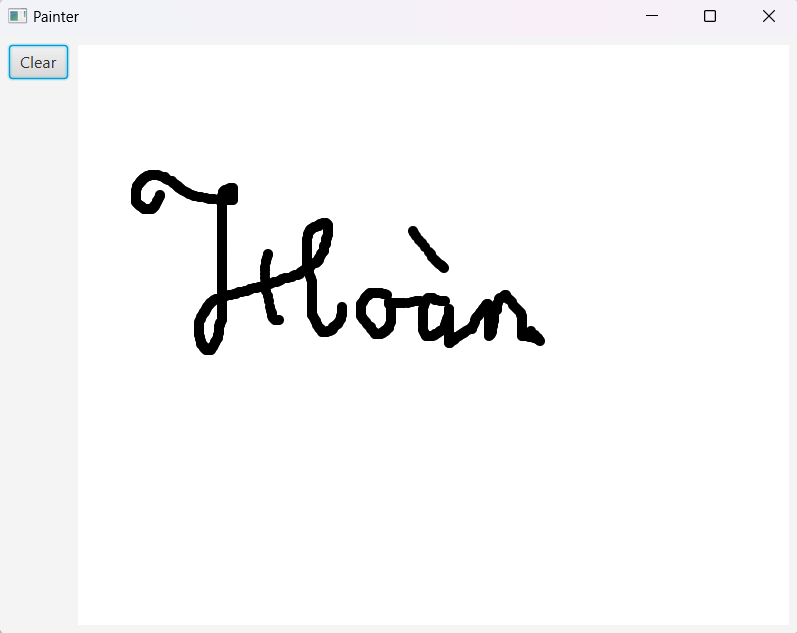 Painter
Clear
Hoàn